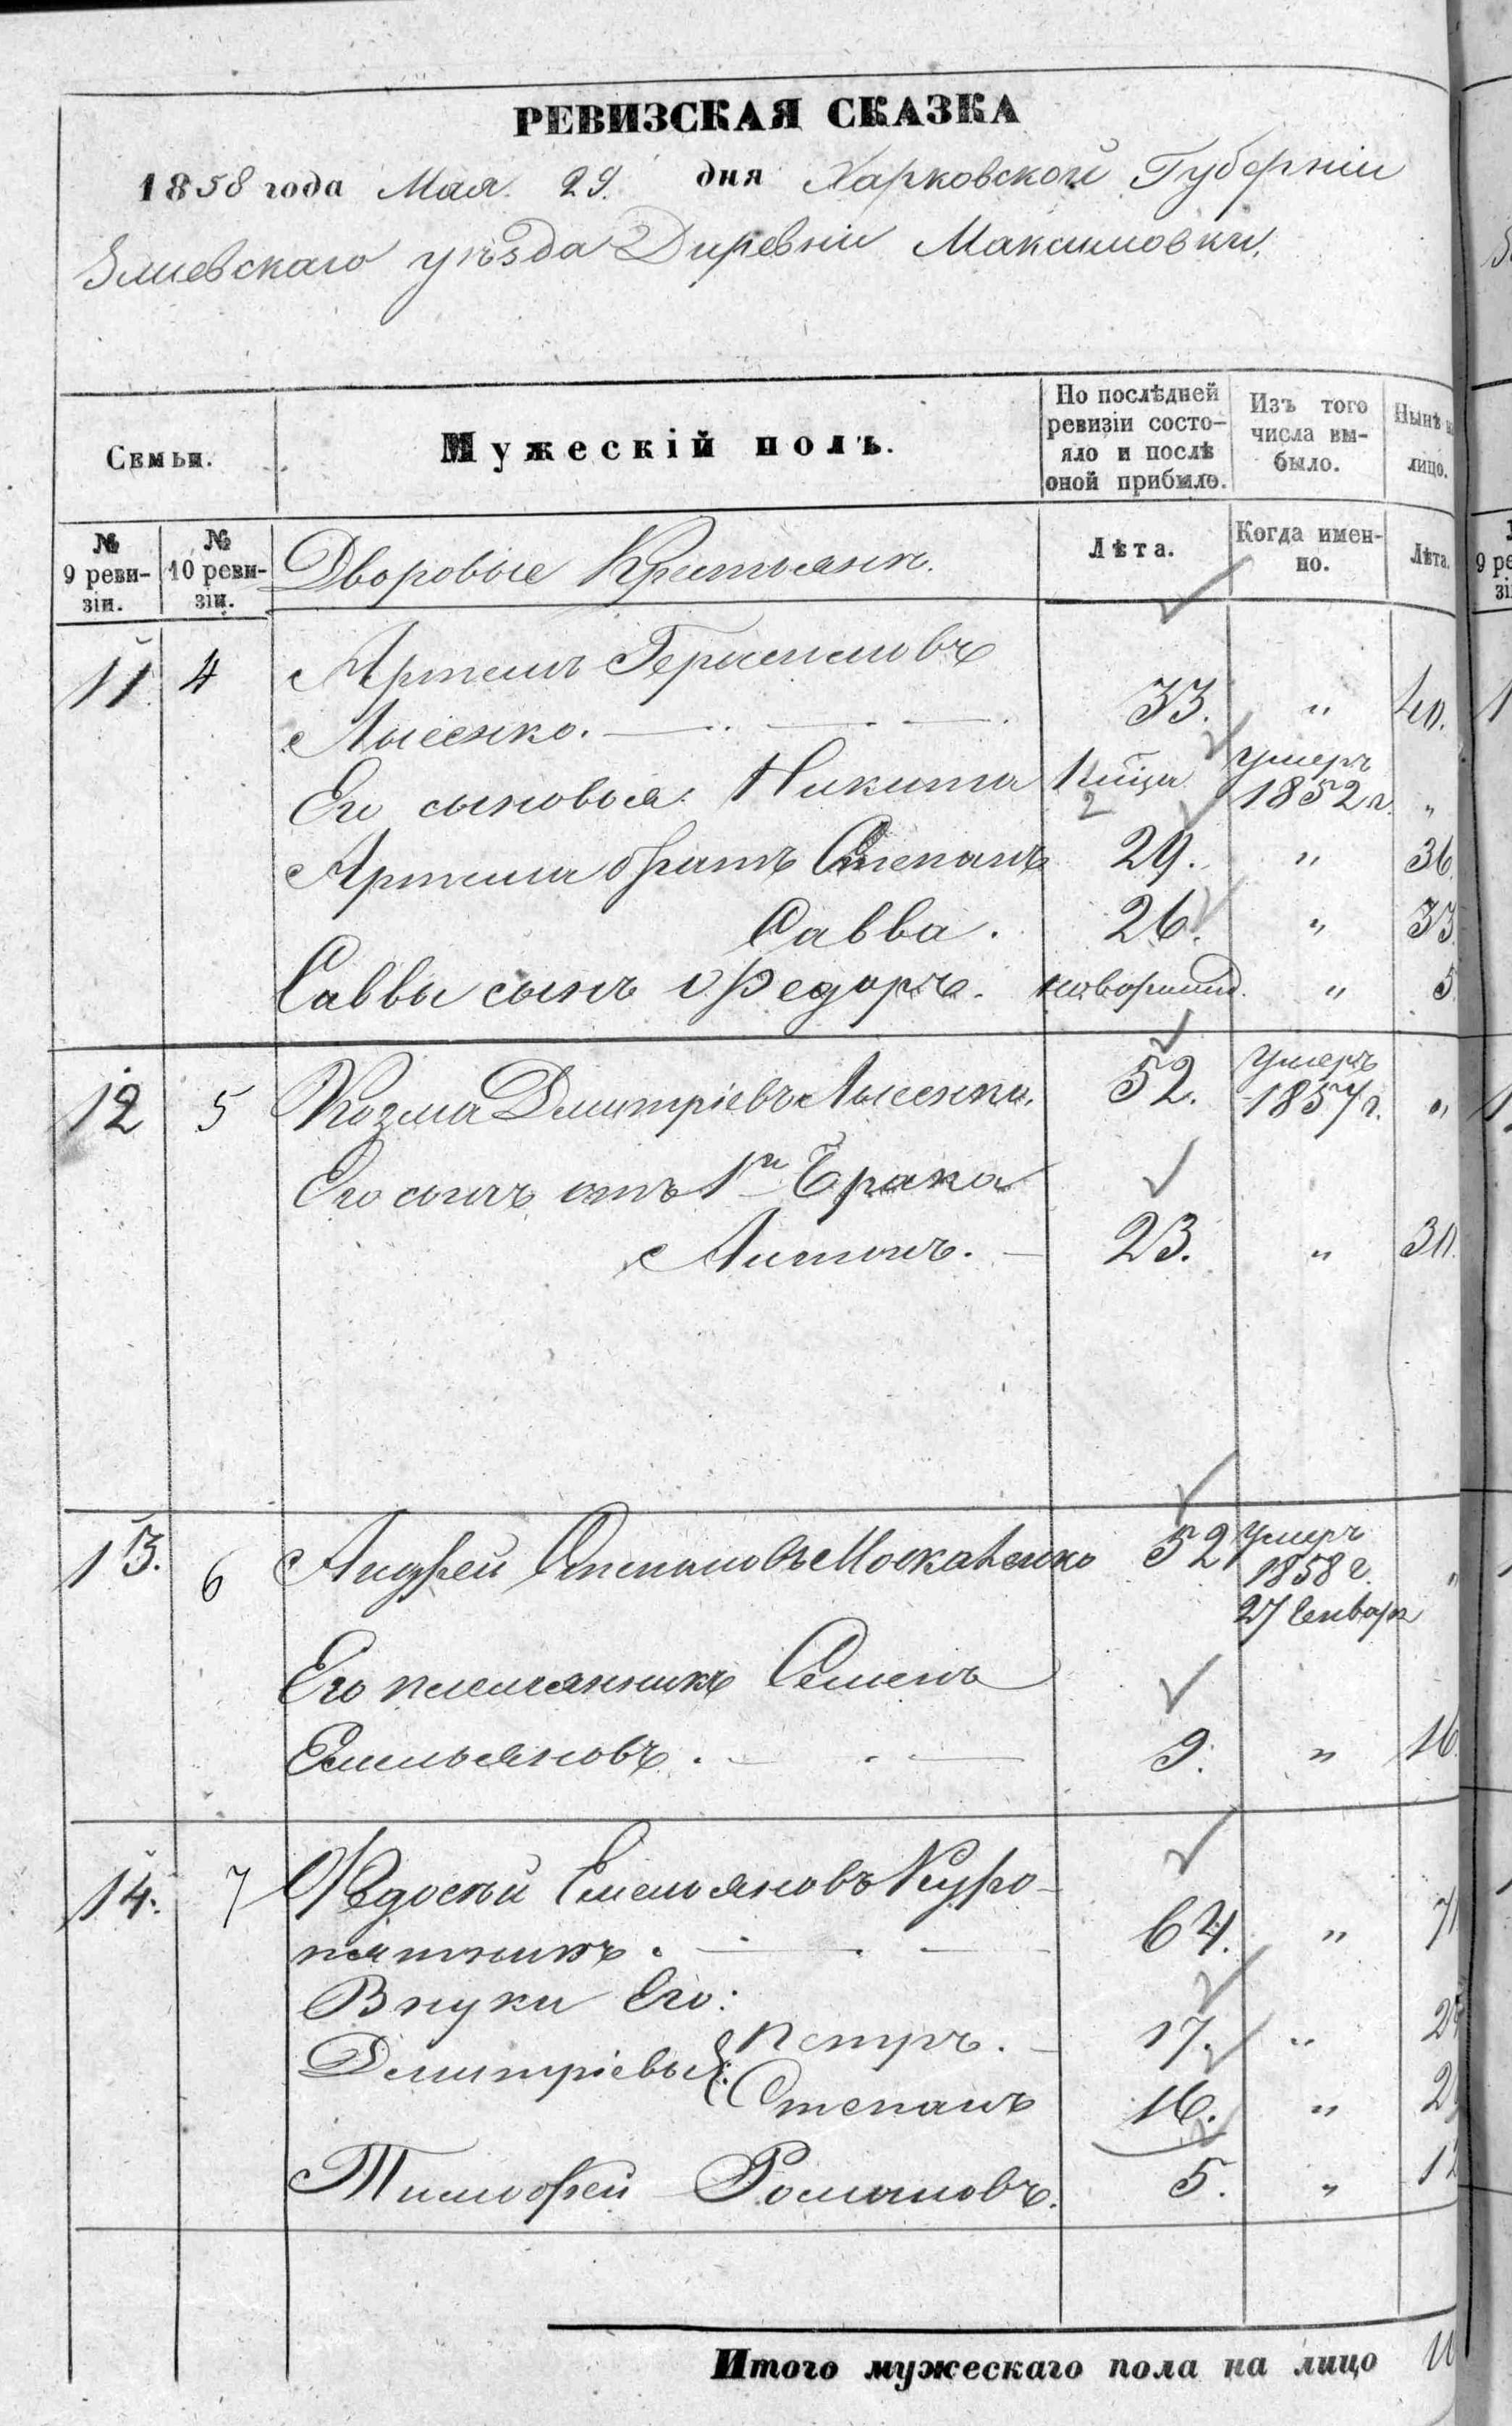 РЕВИЗСКАЯ СКАЗКА
1858 года Мая 29. дня Харковской Губерніи
Змиевскаго уѣзда Диревни Максимовки.
Семьи.
Мужескій полъ.
По послѣдней ревизіи состо-яло и послѣ оной прибыло.
Изъ того числа вы-было.
Нынѣ на лицо.
№ 9 реви-зіи.
№ 10 реви-зіи.
Дворовые Крестьяни.
Лѣта.
Когда имен-но.
Лѣта.
11 4 Артемъ Герасимовъ
Лысенко. 33. " 40.
Его сыновья Никита 2 умеръ 1852 г. "
Артема братъ Степанъ 29. " 36.
Савва. 26. " 33.
Саввы сынъ Федоръ. новорожд. " 5
12 5 Козма Дмитріевъ Лысенко. 52. умеръ 1857 г. "
Его сынъ отъ 1го брака
Антонъ. 23. " 30.
13. 6 Андрей Степановъ Москаленко 52 умеръ 1858 г. 27 Генваря "
Его племянникъ Семенъ
Емельяновъ. 9. " 16.
14. 7 Федосѣй Емельяновъ Куро-
пятникъ. 64. " 71
Внуки Его:
Дмитріевы: Петръ. 17. "
Степанъ 16. "
Тимофей Романовъ. 5. " 12
Итого мужескаго пола на лицо